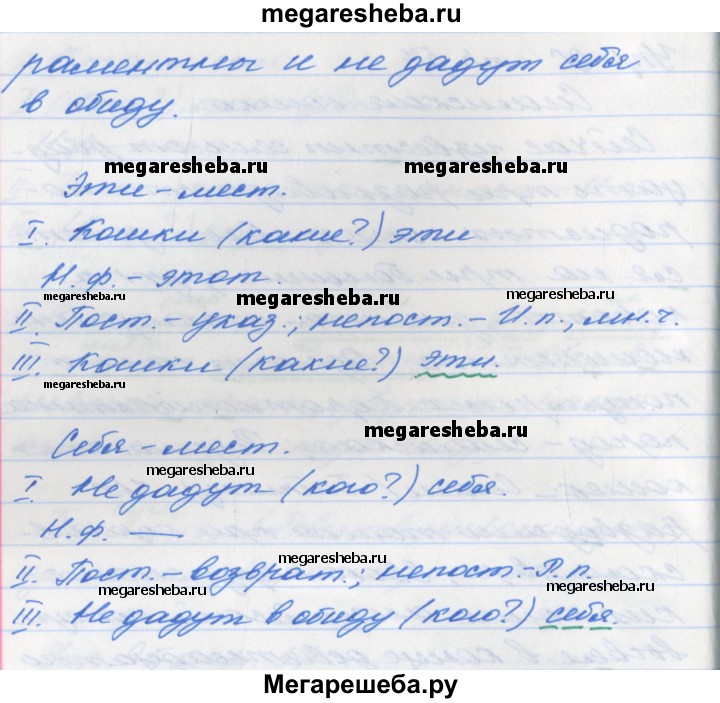 megaresheba.ru
раментны и не дадут себя
в обиду.
megaresheba.ru megaresheba.ru
Эти – мест.
I. Кошки (какие?) эти
Н. ф. – этот.
megaresheba.ru megaresheba.ru megaresheba.ru
II. Пост. – указ.; непост. – И.п., мн.ч.
III. Кошки (какие?) эти.
megaresheba.ru
megaresheba.ru
Себя – мест.
megaresheba.ru
I. Не дадут (кого?) себя.
Н. ф. —
megaresheba.ru
II. Пост. – возврат.; непост. – Р.п.
megaresheba.ru megaresheba.ru
III. Не дадут в обиду (кого?) себя.
Мегарешеба.ру